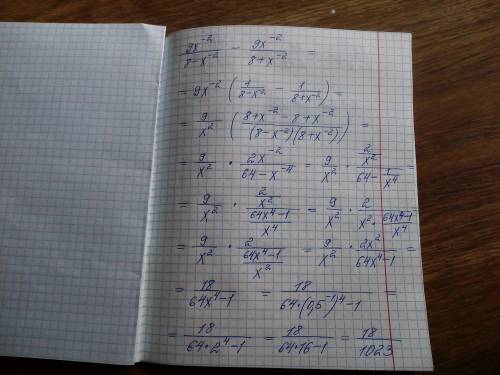 9x⁻²/(8-x⁻²) - 9x⁻²/(8+x⁻²) =
= 9x⁻² (1/(8-x⁻²) - 1/(8+x⁻²)) =
= 9/x² ((8+x⁻²-8+x⁻²)/((8-x⁻²)(8+x⁻²))) =
= 9/x² · 2x⁻²/(64-x⁻⁴) = 9/x² · (2/x²)/(64-1/x⁴) =
= 9/x² · (2/x²)/((64x⁴-1)/x⁴) = 9/x² · 2/(x² · (64x⁴-1)/x⁴) =
= 9/x² · 2/((64x⁴-1)/x²) = 9/x² · 2x²/(64x⁴-1) =
= 18/(64x⁴-1) = 18/(64·(0,5⁻¹)⁴-1) =
= 18/(64·2⁴-1) = 18/(64·16-1) = 18/1023